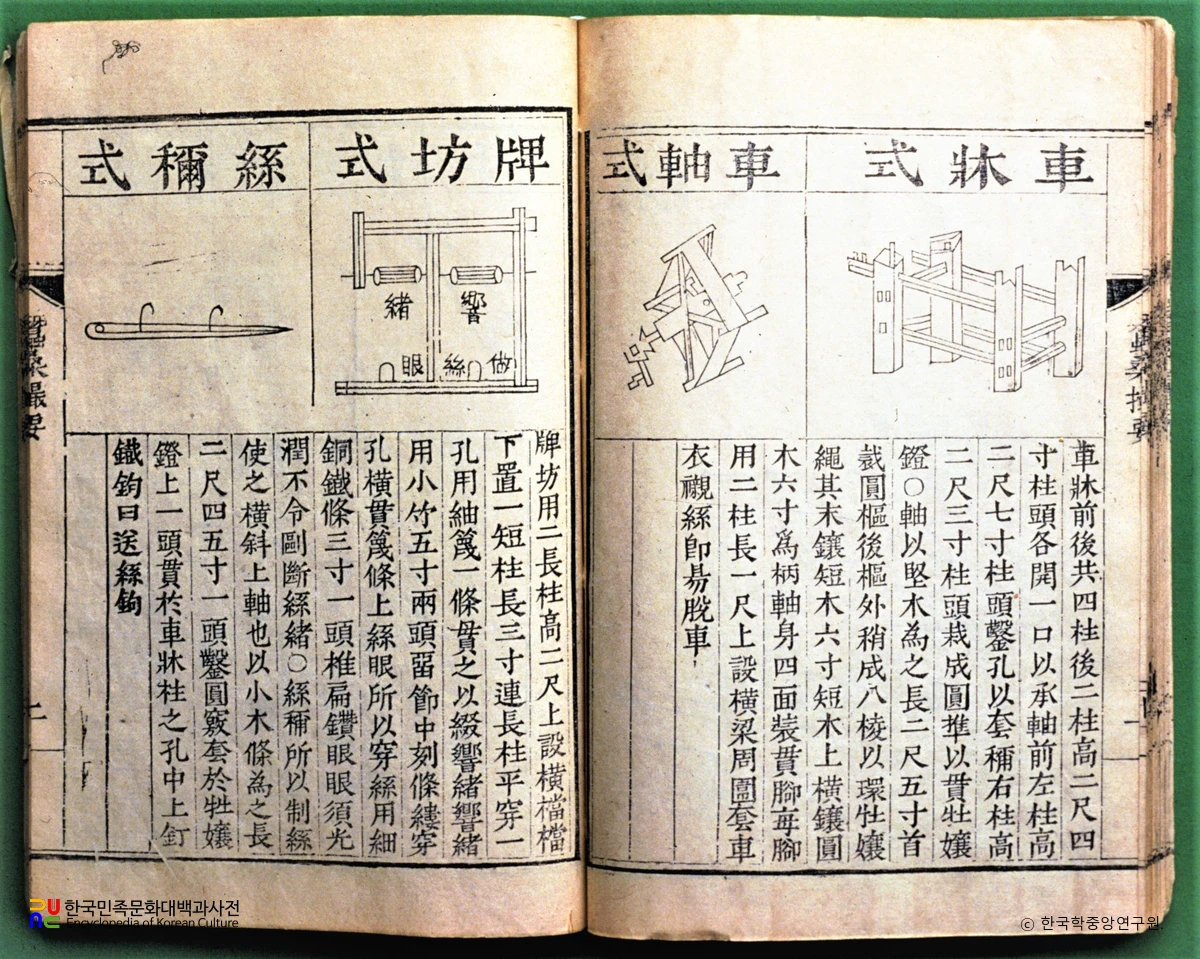 車牀式
車軸式
車牀前後共四柱後二柱高二尺四
寸柱頭各開一口以承軸前左柱高
二尺七寸柱頭鑿孔以套穪右柱高
二尺三寸柱頭栽成圓準以貫牡孃
鐙○軸以堅木為之長二尺五寸首
裁圓樞後樞外稍成八棱以環牡孃
繩其末鑲短木六寸短木上橫鑲圓
木六寸爲柄軸身四面裝貫腳每腳
用二柱長一尺上設橫梁周圍套車
衣襯絲卽昜脫車
牌坊式
絲穪式
響
緒
做
絲
眼
牌坊用二長柱高二尺上設橫檔檔
下置一短柱長三寸連長柱平穿一
孔用紬篾一條貫之以綴響緒響緒
用小竹五寸兩頭畱節中刻條縷穿
孔橫貫篾條上絲眼所以穿絲用細
銅鐵條三寸一頭椎扁鑽眼眼須光
潤不令剾斷絲緒○絲穪所以制絲
使之橫斜上軸也以小木條為之長
二尺四五寸一頭鑿圓竅套於牡孃
鐙上一頭貫於車牀柱之孔中上釘
鐵鉤曰送絲鉤
蠶桑撮要
한국민족문화대백과사전
Encyclopedia of Korean Culture
ⓒ 한국학중앙연구원